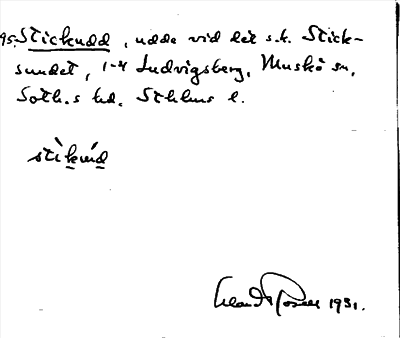 95. Stickudd, udde vid det s.k. Stick-
sundet, 1-4 Ludvigsberg, Muskö sn,
Soth.s hd. Sthlms l.
stìkúd
1931.